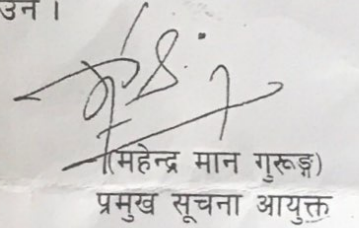 उन ।
(महेन्द्र मान गुरूङ्ग)
प्रमुख सूचना आयुक्त